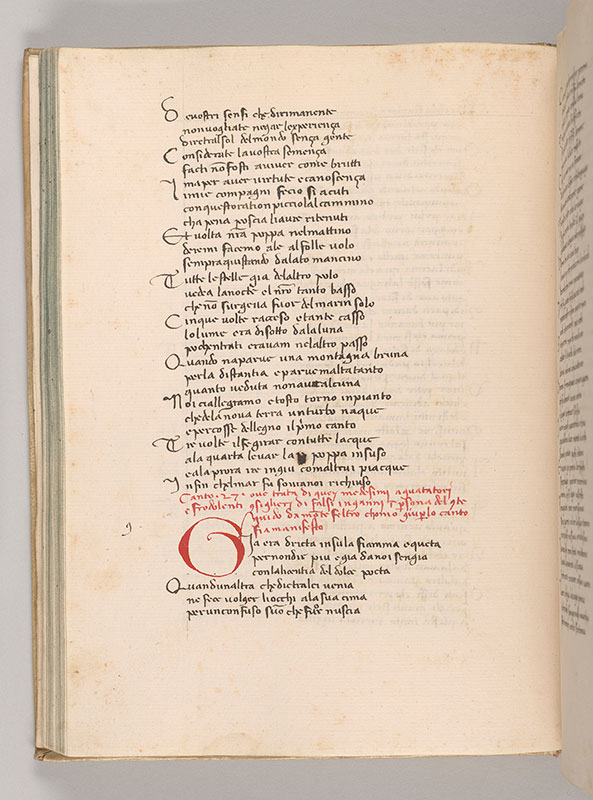 D evostri sensi che dirimanente
non vogliate negar lexperiença
diretral sol del mondo sença gente
C onsiderate la vostra semença
facti nō fosti aviver come brutti
I ma per aver virtute e canoscença
I imie compagni fecio si acuti
con questoration picciola lcammino
cha pena poscia liavre ritenuti
Et volta nr̄a poppa nelmattino
deremi facemo ale alfolle volo
sempraquistando dalato mancino
Tutte lestelle gia delaltro polo
vedea lanocte el nr̄o tanto basso
che nō surgeva fuor delmarin solo
C inque volte racceso etante casso
lolume era disotto dalaluna
poi chentrati eravam nelaltro passo
Q uando naparve una montagna bruna
perla distantia e parve malta tanto
quanto veduta nonavea alcuna
N oi ciallegramo e tosto torno inpianto
che dela nova terra un turbo naque
e percosse dellegno il pmo canto
Tre volte ilfe girar contutte lacque
ala quarta levar la poppa insuso
e ala prora ire ingiu comaltrui piacque
I nfin chelmar fu sovranoi richiuso
Canto .27. ove trata di quey medesimi aguatatori
e frodolenti 9siglieri di falsi inganni ī psona del 9te
guido da montefeltro chomio giu plo canto
sia manifesto
9
G ia era dricta insu la fiamma e queta
per nondir piu e gia danoi sengia
con la licentia del dolce poeta
Q uandunaltra che dietralei venia
ne fece volger liocchi ala sua cima
per unconfuso suō che fuor nuscia